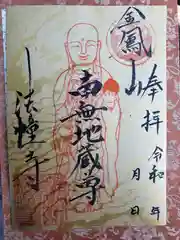 奉拝
令和　年
月　日
金鳳山
南無地蔵尊
法幢寺